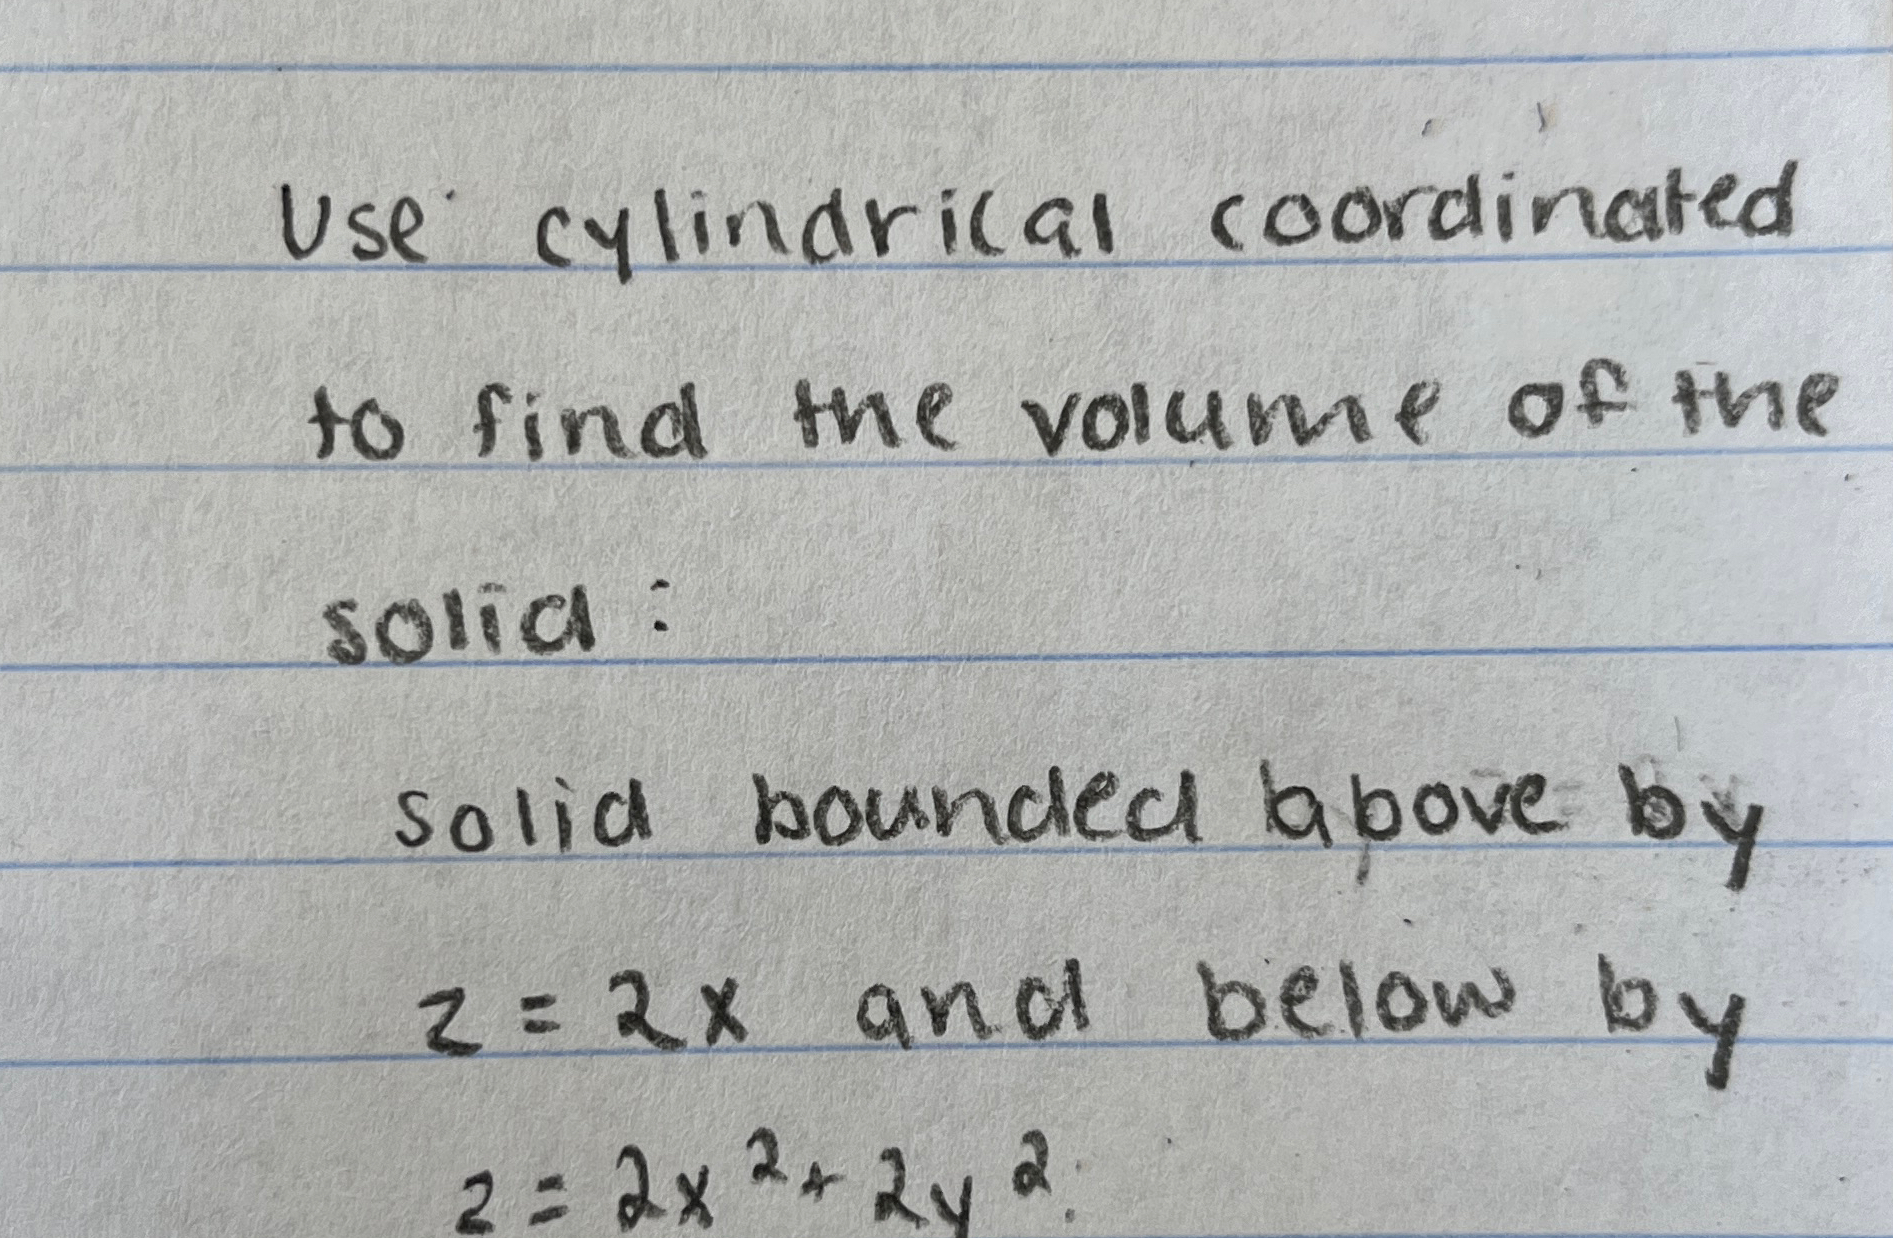 Use cylindrical coordinated
to find the volume of the
solid:
solid bounded above by
z = 2x and below by
z = 2x² + 2y².